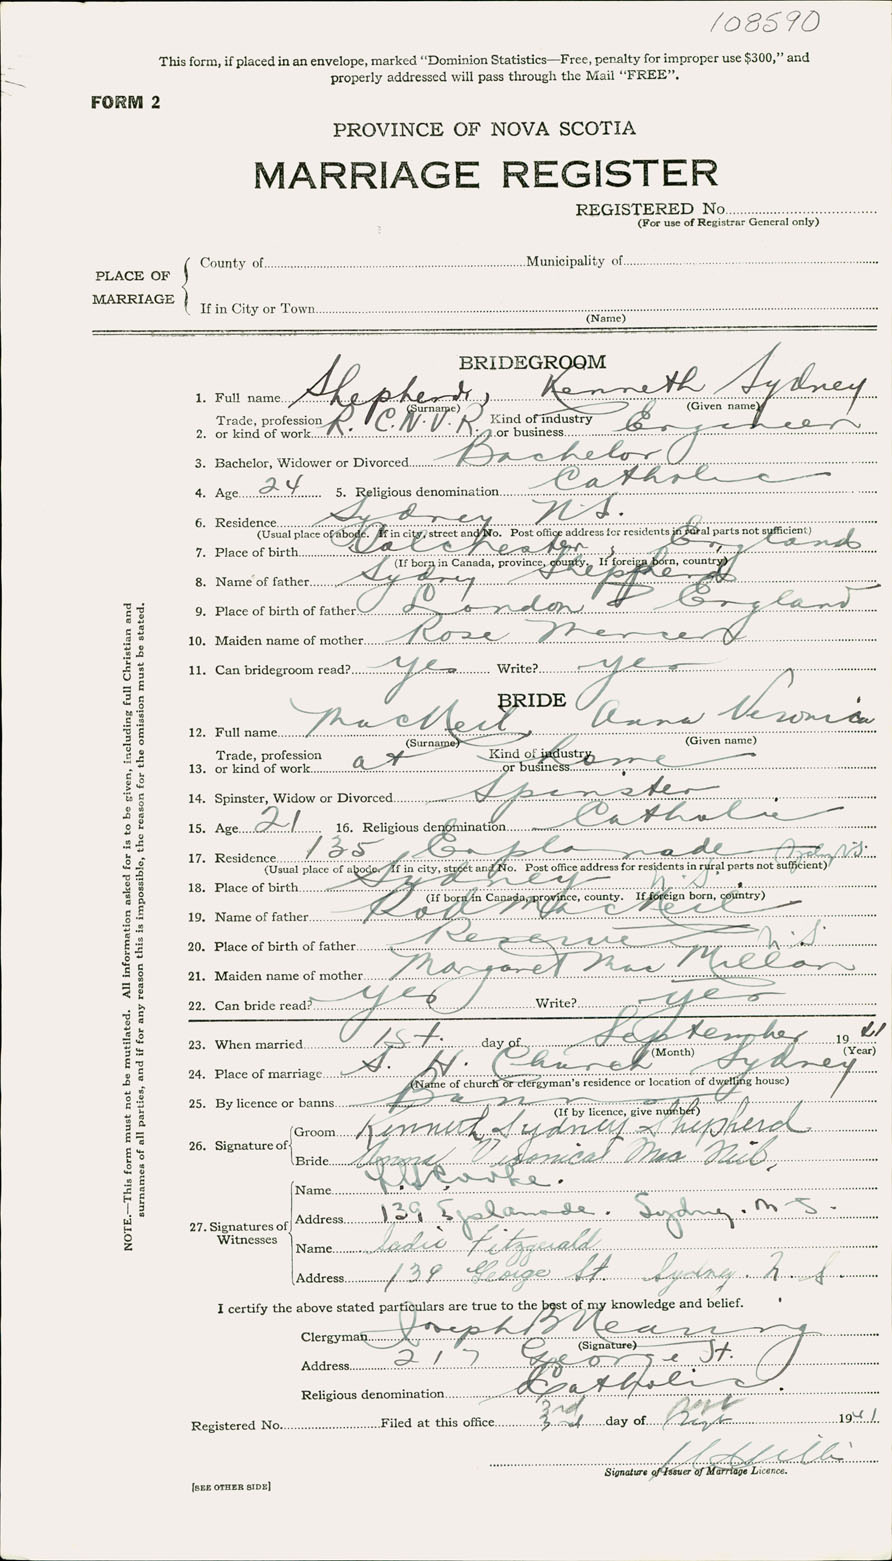 108590
This form, if placed in an envelope, marked "Dominion Statistics—Free, penalty for improper use $300," and
properly addressed will pass through the Mail "FREE".
FORM 2
PROVINCE OF NOVA SCOTIA
MARRIAGE REGISTER
REGISTERED No.
(For use of Registrar General only)
PLACE OF MARRIAGE
County of Municipality of
If in City or Town
(Name)
BRIDEGROOM
1. Full name Shepherd, Kenneth Sydney
(Surname) (Given name)
2. Trade, profession or kind of work R.C.N.V.R. Kind of industry or business Engineer
3. Bachelor, Widower or Divorced Bachelor
4. Age 24 5. Religious denomination Catholic
6. Residence Sydney N.S.
(Usual place of abode. If in city, street and No. Post office address for residents in rural parts not sufficient)
7. Place of birth Colchester, England
(If born in Canada, province, county. If foreign born, country)
8. Name of father Sydney Shepherd
9. Place of birth of father London England
10. Maiden name of mother Rose Mercer
11. Can bridegroom read? yes Write? yes
BRIDE
12. Full name MacNeil, Anna Veronica
(Surname) (Given name)
13. Trade, profession or kind of work at Kind of industry or business home
14. Spinster, Widow or Divorced Spinster
15. Age 21 16. Religious denomination Catholic
17. Residence 135 Esplanade Sydney N.S.
(Usual place of abode. If in city, street and No. Post office address for residents in rural parts not sufficient)
18. Place of birth Sydney N.S.
(If born in Canada, province, county. If foreign born, country)
19. Name of father Rod MacNeil
20. Place of birth of father Reserve N.S.
21. Maiden name of mother Margaret MacMillan
22. Can bride read? yes Write? yes
23. When married 1st. day of September 1941
(Month) (Year)
24. Place of marriage S. H. Church Sydney
(Name of church or clergyman's residence or location of dwelling house)
25. By licence or banns Banns
(If by licence, give number)
26. Signature of Groom Kenneth Sydney Shepherd
Bride Anna Veronica Mac Neil,
27. Signatures of Witnesses
Name Cooke.
Address 139 Esplanade. Sydney. N.S.
Name Sadie Fitzgerald
Address 139 George St. Sydney. N.S.
I certify the above stated particulars are true to the best of my knowledge and belief.
Clergyman Joseph B Nearing
(Signature)
Address 217 George St.
Religious denomination Catholic.
Registered No. Filed at this office 3rd day of Sept 1941
Signature of Issuer of Marriage Licence.
[SEE OTHER SIDE]
NOTE.—This form must not be mutilated. All information asked for is to be given, including full Christian and
surnames of all parties, and if for any reason this is impossible, the reason for the omission must be stated.